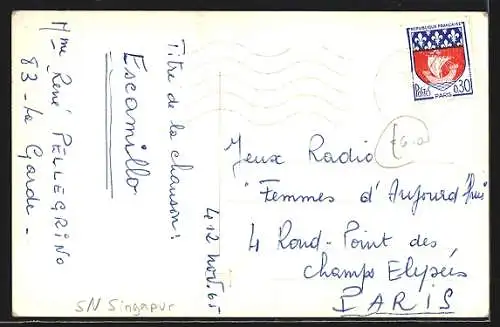 Mme René PELLEGRINO
83 - La Garde -
Titre de la chanson :
Escamillo
4 12 Nov. 65
SN Singapur
REPUBLIQUE FRANÇAISE
Postes
0,30
PARIS
Jeux Radio
"Femmes d'Aujourd'hui"
4 Rond-Point des
Champs Elysées
PARIS